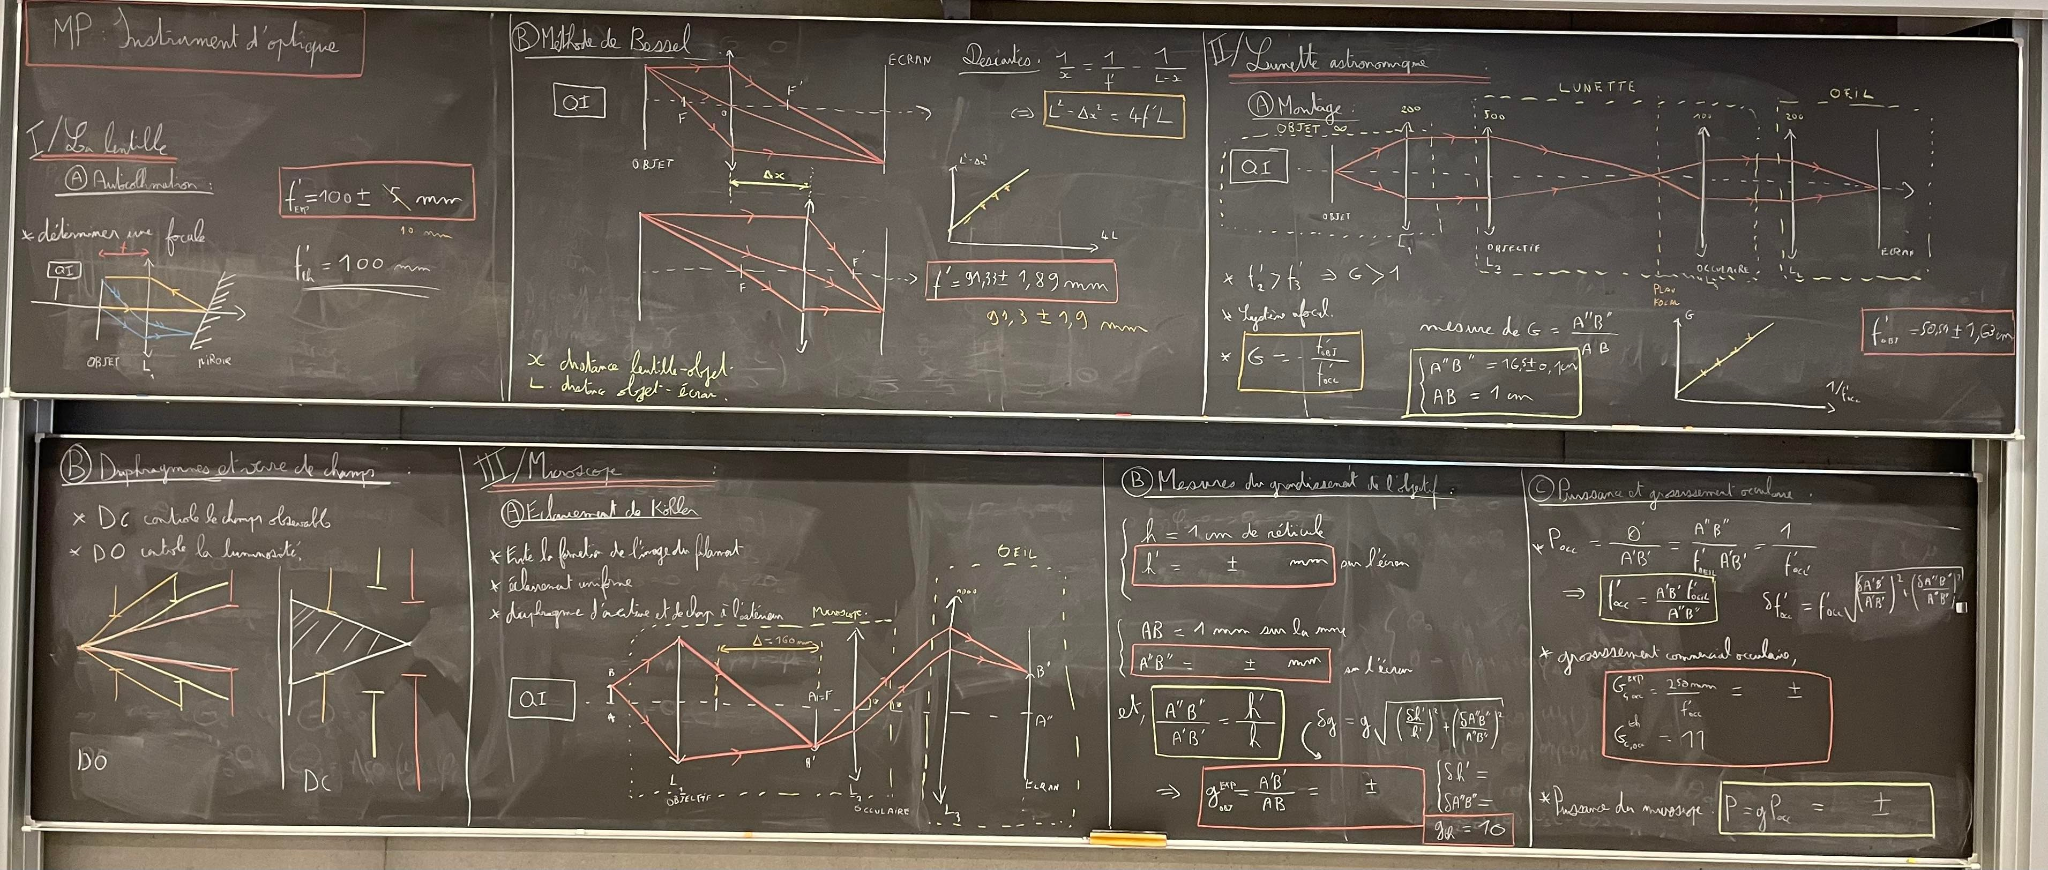 MP : Instrument d'optique
I/ La lentille
Ⓐ Autocollimation :
* déterminer une focale
QI
OBJET
L1
MIROIR
f'EXP = 100 ± 5 mm
10 mm
f'th = 100 mm
Ⓑ Méthode de Bessel
QI
F
O
F'
ECRAN
OBJET
Δx
F
F'
x distance lentille-objet
L distance objet-écran
Descartes : 1/x = 1/f' - 1/(L-x)
⇔ L² - Δx² = 4f'L
L²-Δx²
4L
f' = 91,33 ± 1,89 mm
91,3 ± 1,9 mm
II/ Lunette astronomique
Ⓐ Montage :
OBJET ∞
LUNETTE
OEIL
200
500
100
200
QI
OBJET
L1
OBJECTIF
L3
OCCULAIRE
L2
ECRAN
PLAN
FOCAL
* f'2 > f'3 ⇒ G > 1
* Système afocal.
* G = - f'OBJ/f'OCC
mesure de G = A"B"/AB
A"B" = 16,5 ± 0,1 cm
AB = 1 cm
G
1/f'occ
f'OBJ = 50,51 ± 1,63 cm
Ⓑ Diaphragmes et verre de champs :
* DC controle le champs observable
* DO controle la luminosité.
DO
DC
III/ Microscope
Ⓐ Eclairement de Köhler
* Evite la formation de l'image du filament
* éclairement uniforme
* diaphragme d'ouverture et de champ à l'extérieur
Microscope
OEIL
Δ = 160 mm
QI
B
A
A'=F
B'
L1
OBJECTIF
L2
OCCULAIRE
L3
B"
A"
ECRAN
Ⓑ Mesures du grandissement de l'objectif :
h = 1 cm de réticule
h' = ± mm sur l'écran
AB = 1 mm sur la mire
A"B" = ± mm sur l'écran
et, A"B"/A'B' = h'/h
δg = g √((δh'/h')² + (δA"B"/A"B")²)
⇒ gOBJ^EXP = A'B'/AB = ±
δh' =
δA"B" =
gth = 10
Ⓒ Puissance et grossissement oculaire :
* Pocc = θ'/A'B' = A"B"/(f'OEIL A'B') = 1/f'occ
⇒ f'occ = A'B' f'OEIL/A"B"
δf'occ = f'occ √((δA'B'/A'B')² + (δA"B"/A"B")²)
* grossissement commercial oculaire,
Gc,occ^EXP = 250mm/f'occ = ±
Gc,occ^th = 11
* Puissance du microscope : P = g Pocc = ±